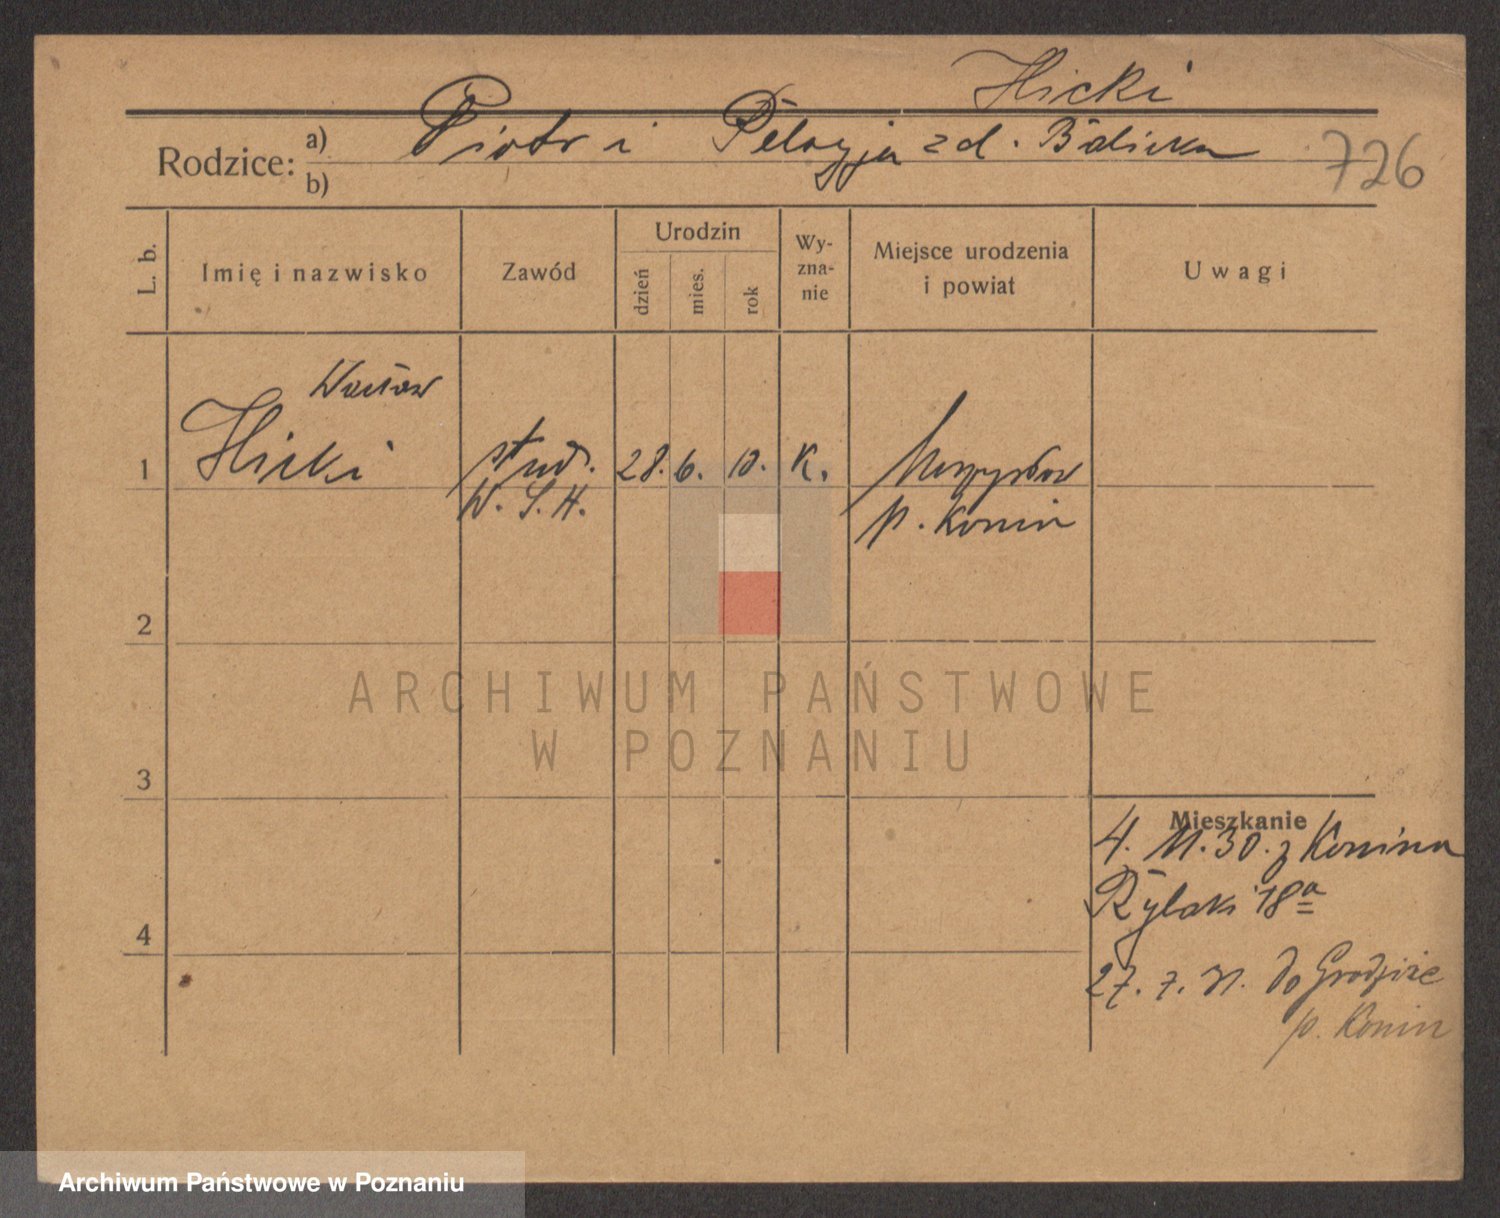 Ilicki
Rodzice: a) Piotr i Pelagja z d. Bilicka
b)
726
L. b.
Imię i nazwisko
Zawód
Urodzin
dzień
mies.
rok
Wy-
zna-
nie
Miejsce urodzenia
i powiat
Uwagi
Wacław
1 Ilicki stud. 28. 6. 10. K.
W. S. H. p. Konin
2
3
4
Mieszkanie
4. 11. 30. z Konina
Rybaki 18a
27. 7. 31. do Grodziec
p. Konin
ARCHIWUM PAŃSTWOWE
W POZNANIU
Archiwum Państwowe w Poznaniu